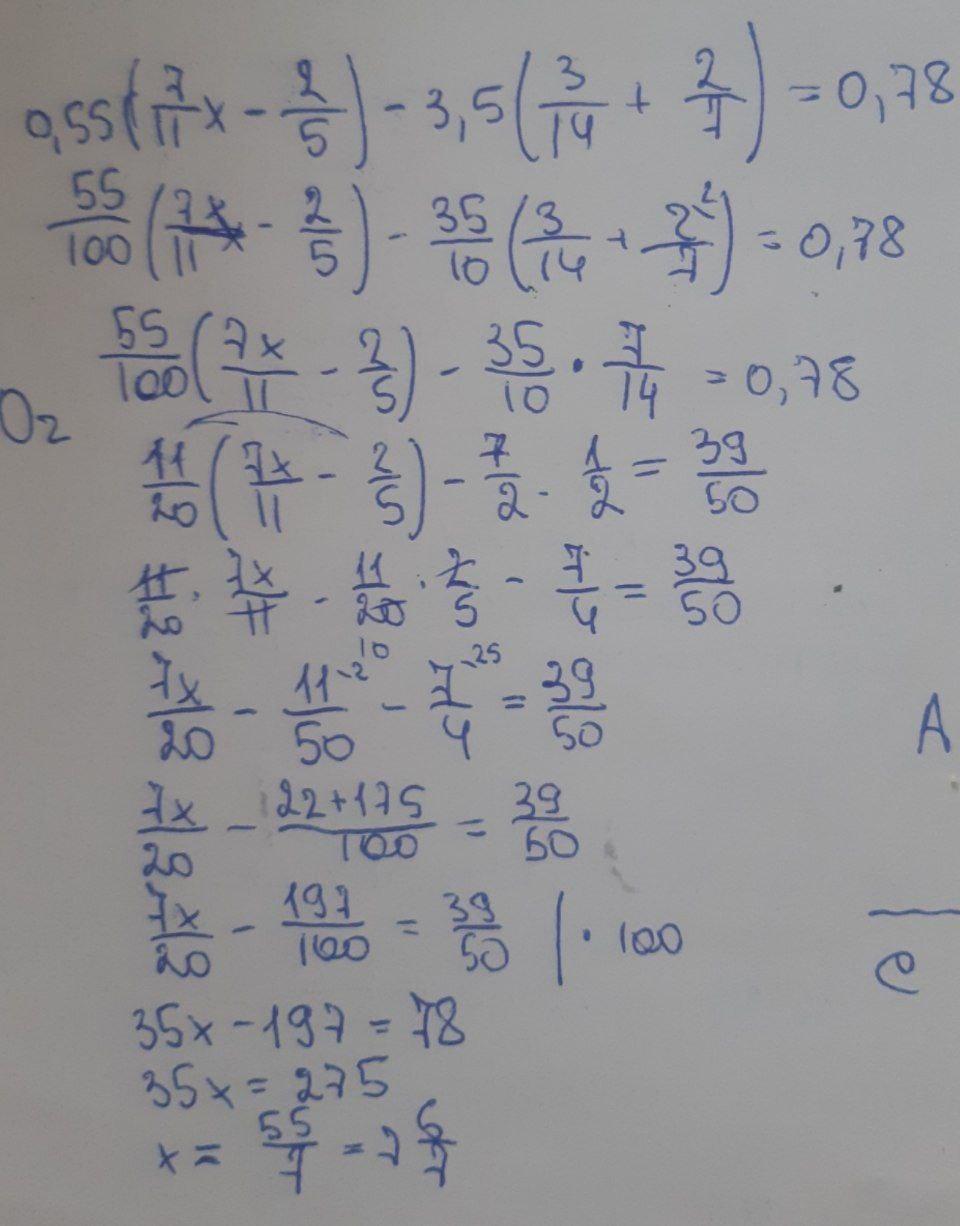 0,55(7/11 x - 2/5) - 3,5(3/14 + 2/7) = 0,78
55/100(7x/11 - 2/5) - 35/10(3/14 + 2^2/7) = 0,78
55/100(7x/11 - 2/5) - 35/10 · 7/14 = 0,78
O2
11/20(7x/11 - 2/5) - 7/2 · 1/2 = 39/50
11/20 · 7x/11 - 11/20 10 · 2/5 - 7/4 = 39/50
7x/20 - 11^2/50 - 7^25/4 = 39/50
A
7x/20 - 22+175/100 = 39/50
7x/20 - 197/100 = 39/50 | · 100
e
35x - 197 = 78
35x = 275
x = 55/7 = 7 6/7